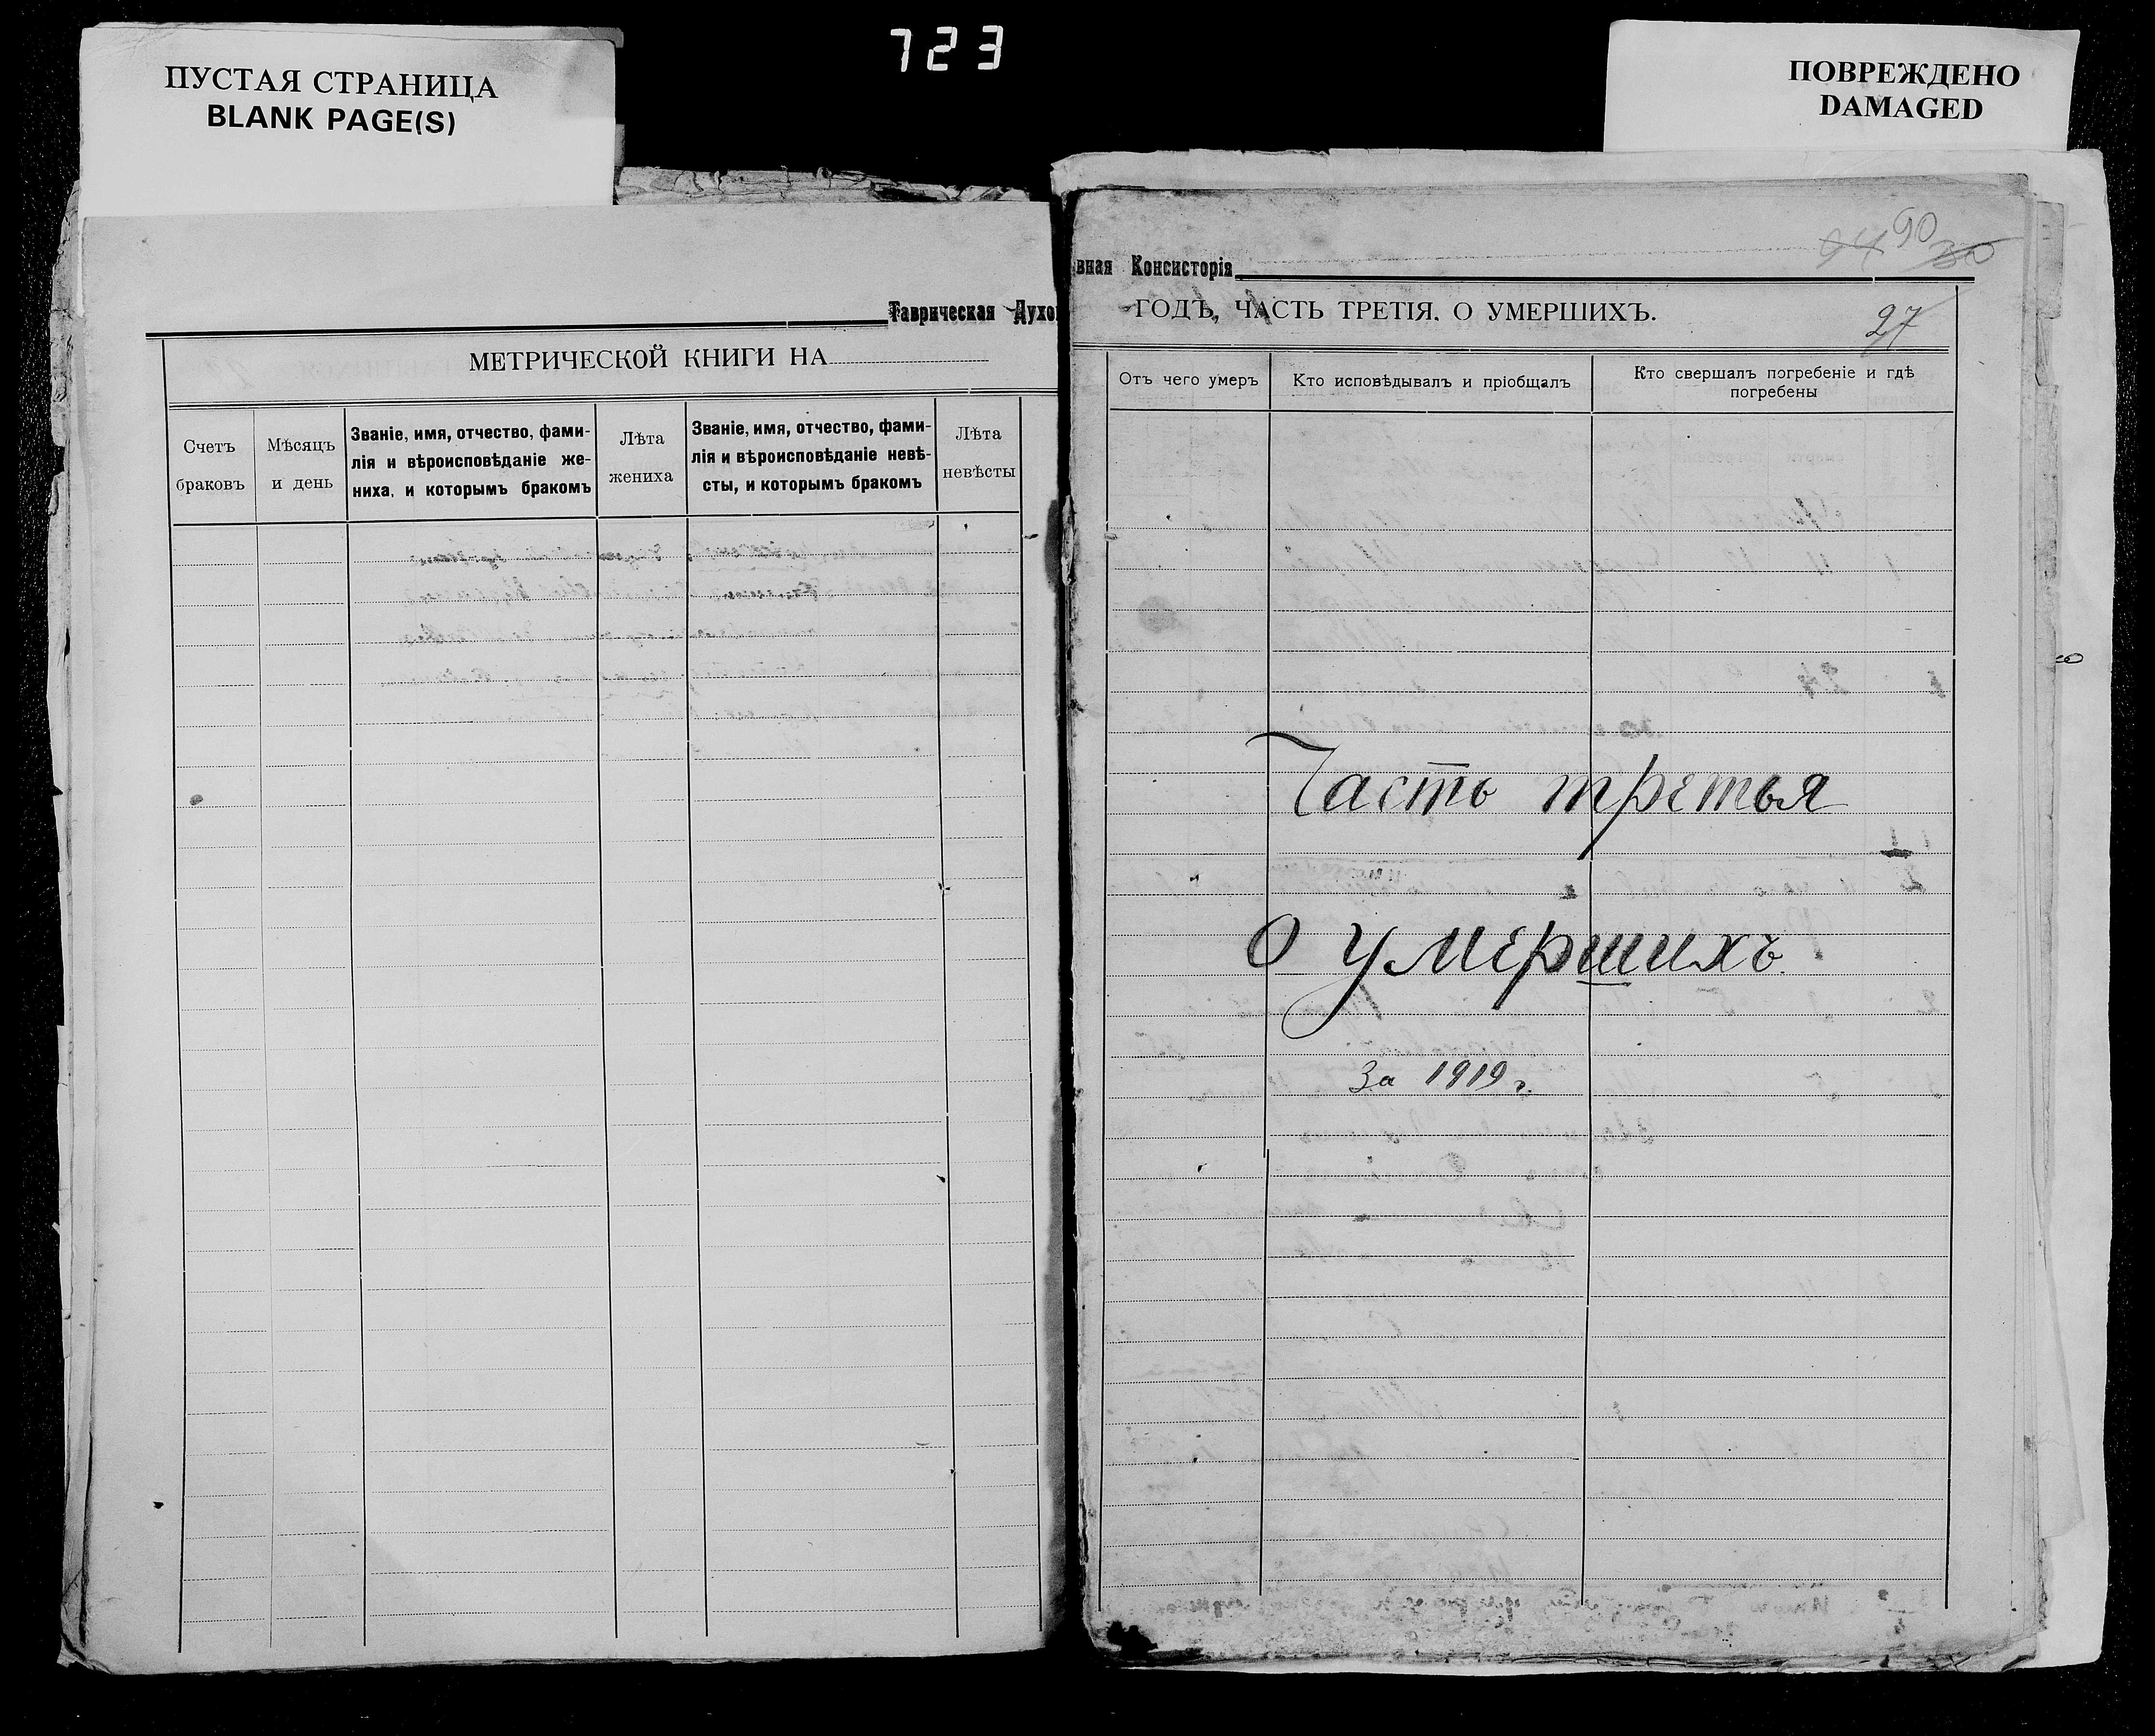 723
ПУСТАЯ СТРАНИЦА
BLANK PAGE(S)
ПОВРЕЖДЕНО
DAMAGED
Таврическая Духо
МЕТРИЧЕСКОЙ КНИГИ НА
Счетъ браковъ
Мѣсяцъ и день
Званіе, имя, отчество, фами-
лія и вѣроисповѣданіе же-
ниха, и которымъ бракомъ
Лѣта жениха
Званіе, имя, отчество, фами-
лія и вѣроисповѣданіе невѣ-
сты, и которымъ бракомъ
Лѣта невѣсты
90
94 30
вная Консисторія
ГОДЪ, ЧАСТЬ ТРЕТІЯ. О УМЕРШИХЪ.
27
Отъ чего умеръ
Кто исповѣдывалъ и пріобщалъ
Кто свершалъ погребеніе и гдѣ
погребены
Часть третья
О умершихъ.
За 1919 г.